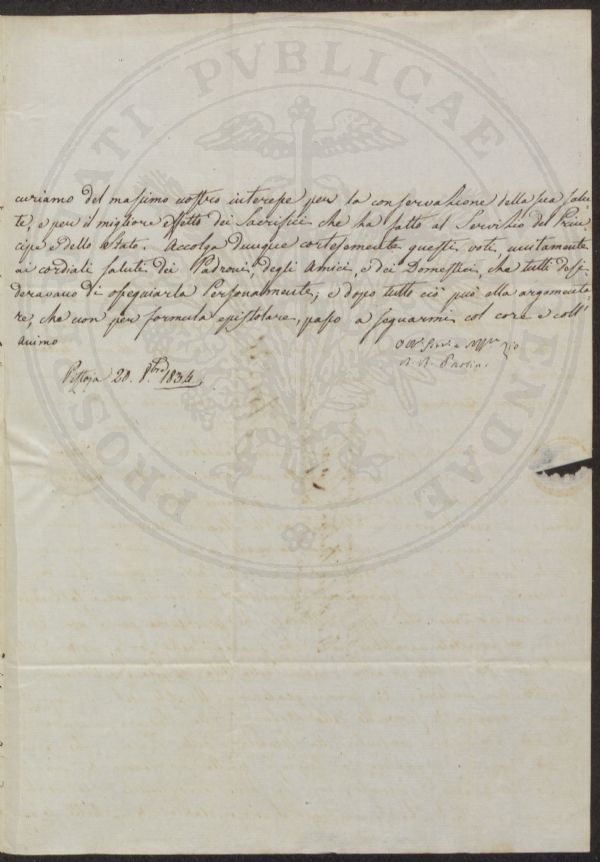 PROSPERITATI PVBLICAE AVGENDAE
curiamo del massimo nostro interesse per la conservazione della sua salu-
te, e per il migliore effetto dei Sacrifici che ha fatto al Servizio del Prin-
cipe e dello Stato. Accolga dunque cortesemente questi voti, unitamente
ai cordiali saluti dei Padroni, degli Amici, e dei Domestici, che tutti desi-
deravano di ossequiarla Personalmente; e dopo tutto ciò può ella argomenta-
re, che non per formula epistolare, passo a segnarmi col core e coll'
animo
Pistoja 20. 8.bre 1834.